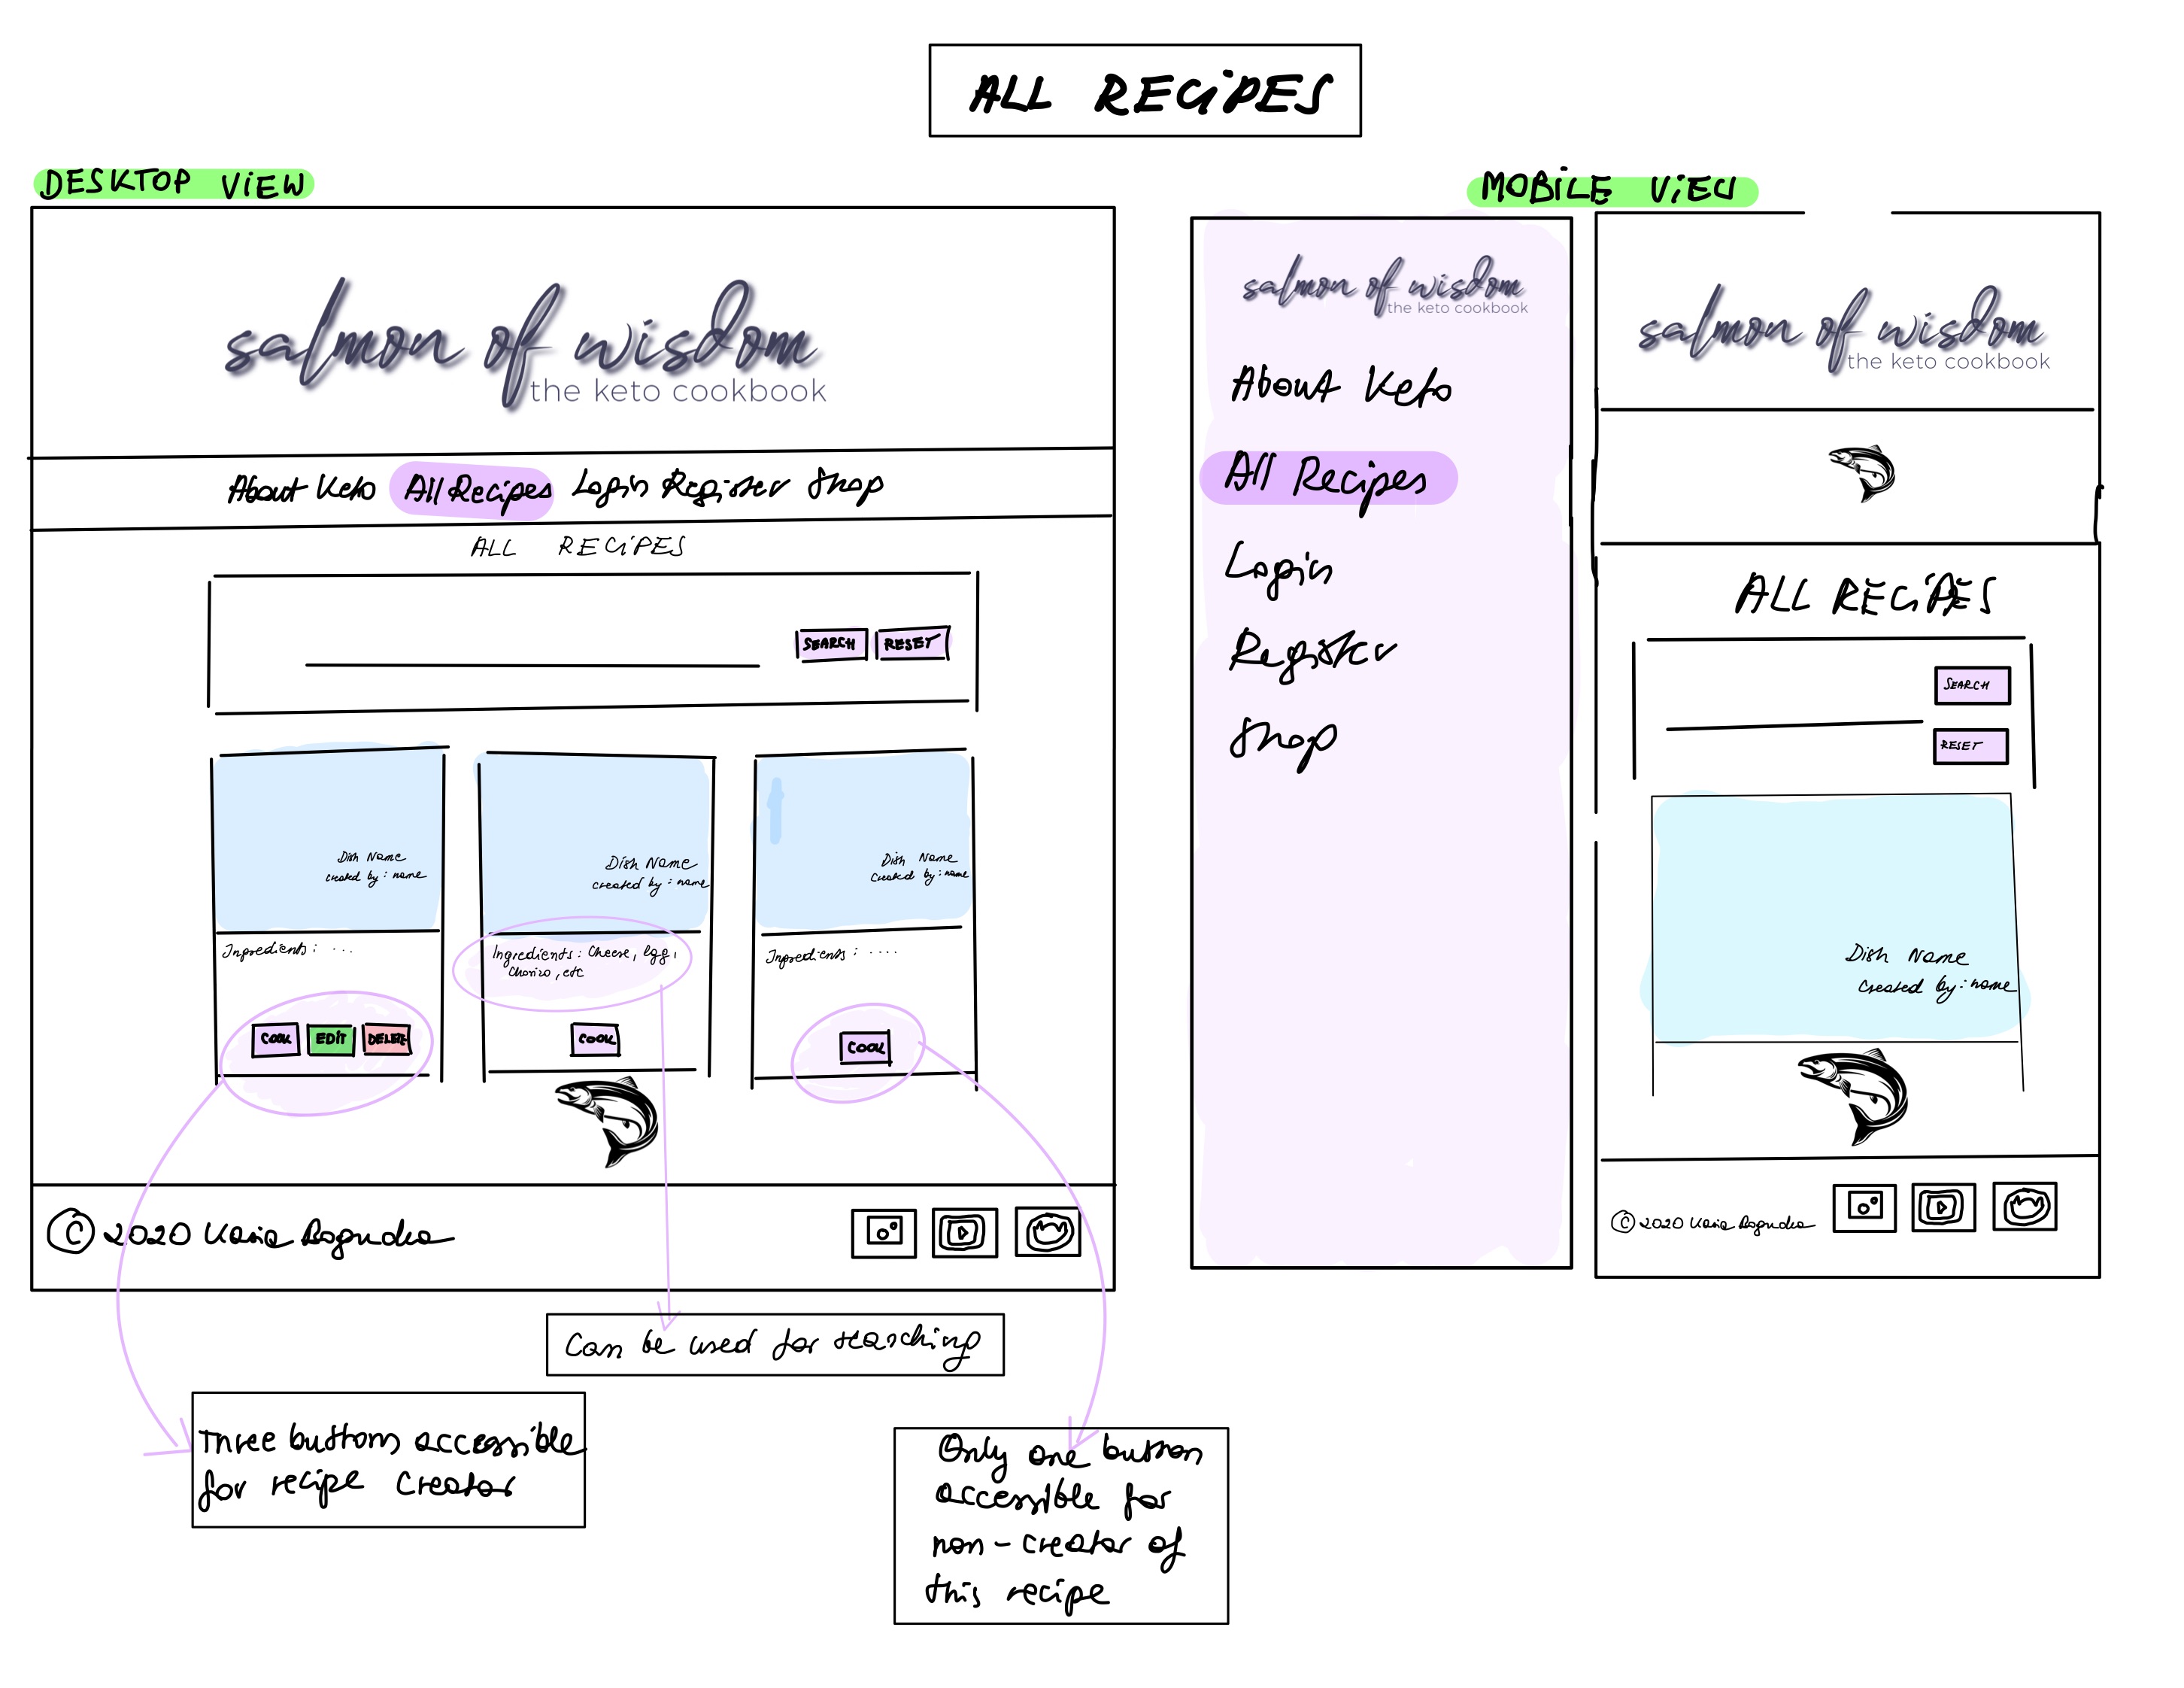 ALL RECIPES
DESKTOP VIEW
salmon of wisdom
the keto cookbook
About Keto All Recipes Login Register Shop
ALL RECIPES
SEARCH RESET
Dish Name
created by: name
Ingredients: ...
COOK EDIT DELETE
Dish Name
created by: name
Ingredients: Cheese, Egg,
Chorizo, etc
COOK
Dish Name
Created by: name
Ingredients: ....
COOK
© 2020 Kasia
Can be used for searching
Three buttons accessible
for recipe creator
Only one button
accessible for
non-creator of
this recipe
MOBILE VIEW
salmon of wisdom
the keto cookbook
About Keto
All Recipes
Login
Register
Shop
salmon of wisdom
the keto cookbook
ALL RECIPES
SEARCH
RESET
Dish Name
Created by: name
© 2020 Kasia